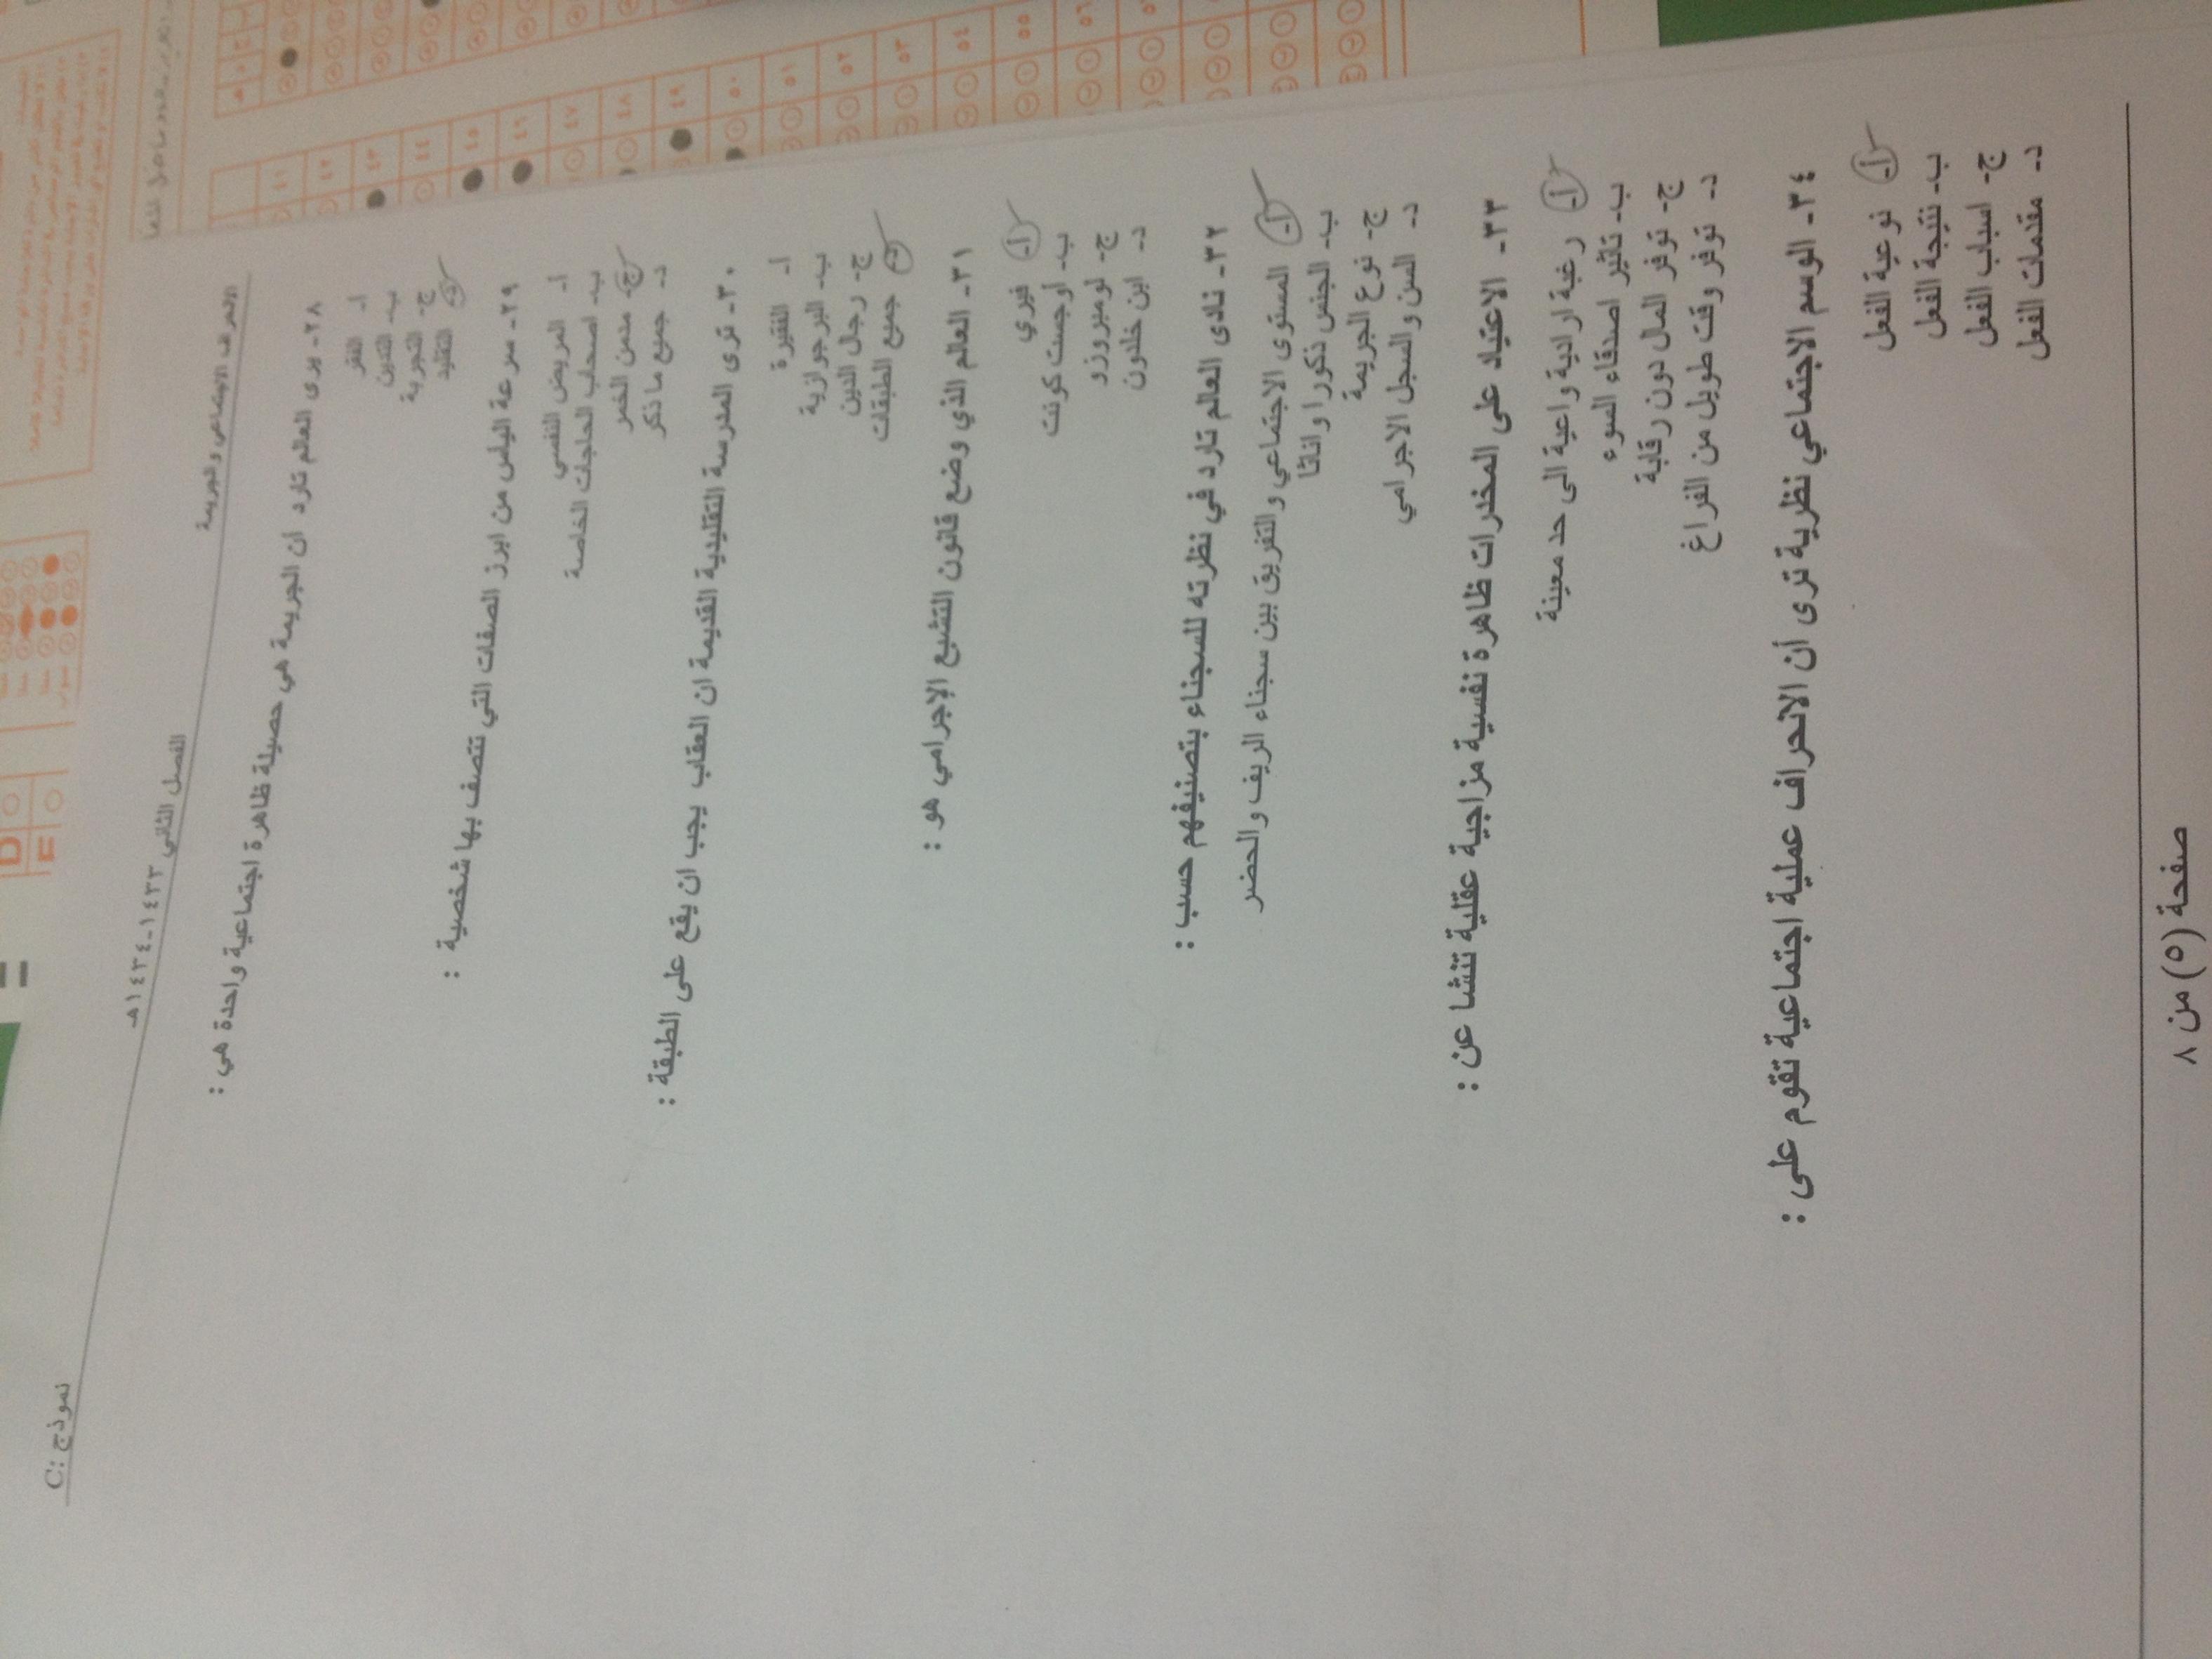 الانحراف الاجتماعي والجريمة
الفصل الثاني ١٤٣٣-١٤٣٤هـ
نموذج :C
٢٨- يرى العالم تارد ان الجريمة هي حصيلة ظاهرة اجتماعية واحدة هي :
أ- الفقر
ب- التدين
ج- التجربة
د- التقليد
٢٩- سرعة اليأس من ابرز الصفات التي تتصف بها شخصية :
أ- المريض النفسي
ب- اصحاب الحاجات الخاصة
ج- مدمن الخمر
د- جميع ما ذكر
٣٠- ترى المدرسة التقليدية القديمة ان العقاب يجب ان يقع على الطبقة :
أ- الفقيرة
ب- البرجوازية
ج- رجال الدين
د- جميع الطبقات
٣١- العالم الذي وضع قانون التشبع الإجرامي هو :
أ- فيري
ب- أوجست كونت
ج- لومبروزو
د- ابن خلدون
٣٢- نادى العالم تارد في نظرته للسجناء بتصنيفهم حسب :
أ- المستوى الاجتماعي والتفريق بين سجناء الريف والحضر
ب- الجنس ذكورا واناثا
ج- نوع الجريمة
د- السن والسجل الاجرامي
٣٣- الاعتياد على المخدرات ظاهرة نفسية مزاجية عقلية تنشا عن :
أ- رغبة ارادية واعية الى حد معينة
ب- تاثير اصدقاء السوء
ج- توفر المال دون رقابة
د- توفر وقت طويل من الفراغ
٣٤- الوسم الاجتماعي نظرية ترى أن الانحراف عملية اجتماعية تقوم على :
أ- نوعية الفعل
ب- نتيجة الفعل
ج- اسباب الفعل
د- مقدمات الفعل
صفحة (٥) من ٨
٤١
٤٢
٤٣
٤٤
٤٥
٤٦
٤٧
٤٨
٤٩
٥٠
٥١
٥٢
٥٣
٥٤
٥٥
٥٦
D
F